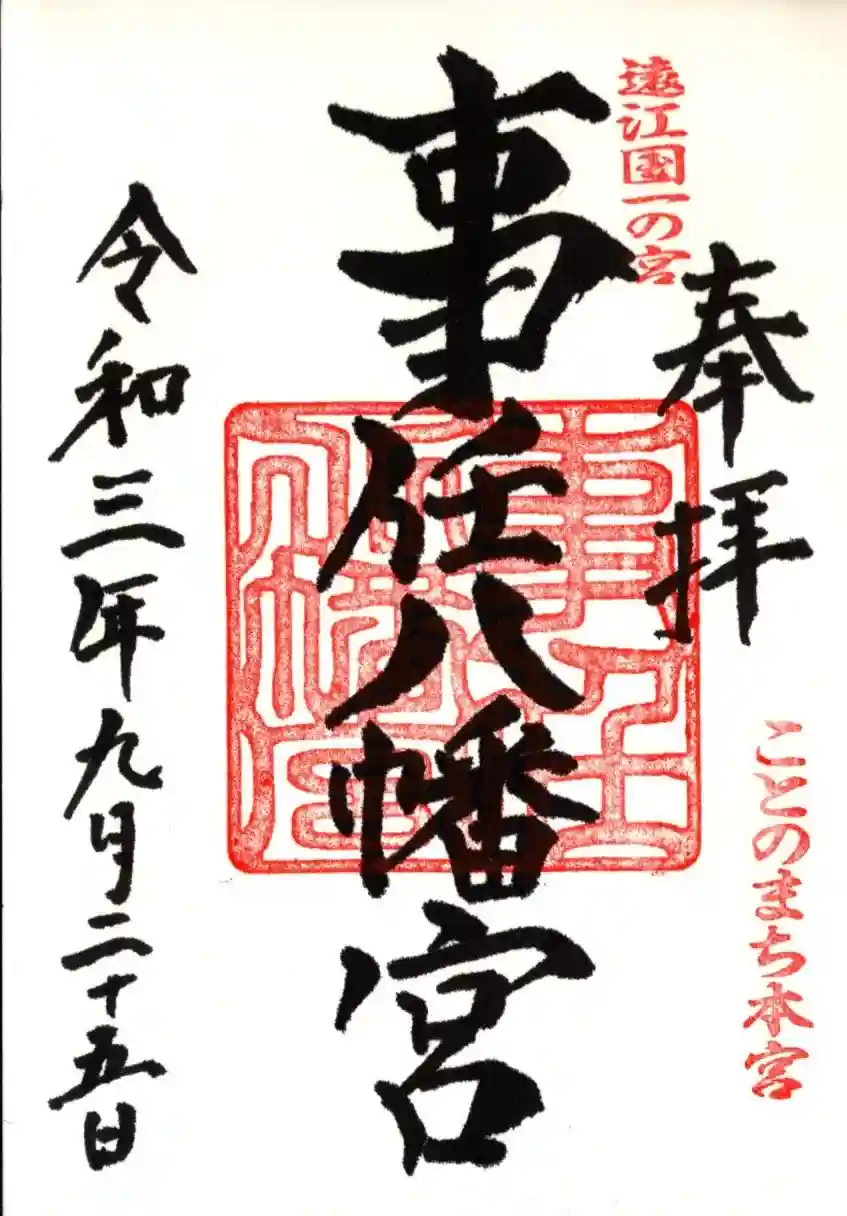 遠江國一の宮
奉拝
ことのまち本宮
事任八幡宮
事任
八幡宮
令和三年九月二十五日